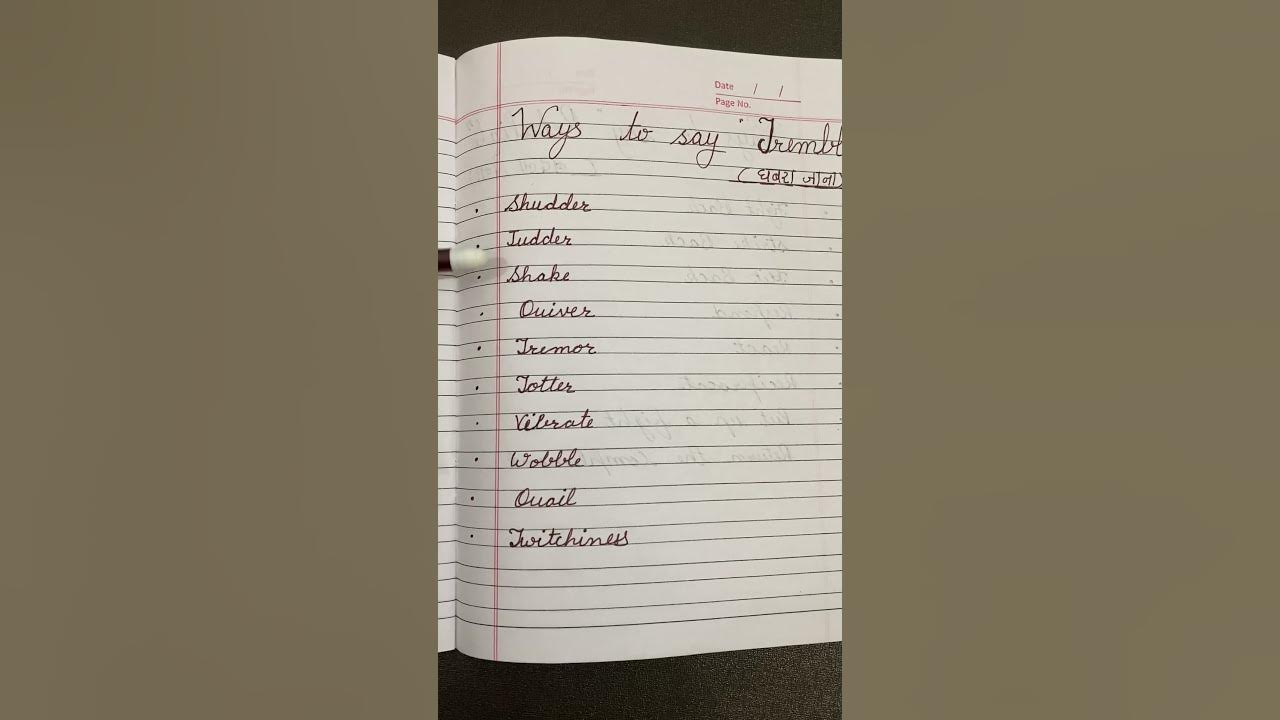 Date / /
Page No.
Ways to say "Trembl
(घबरा जाना)
• Shudder
• Judder
• Shake
• Quiver
• Tremor
• Totter
• Vibrate
• Wobble
• Quail
• Twitchiness